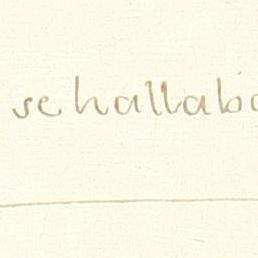 se hallabo